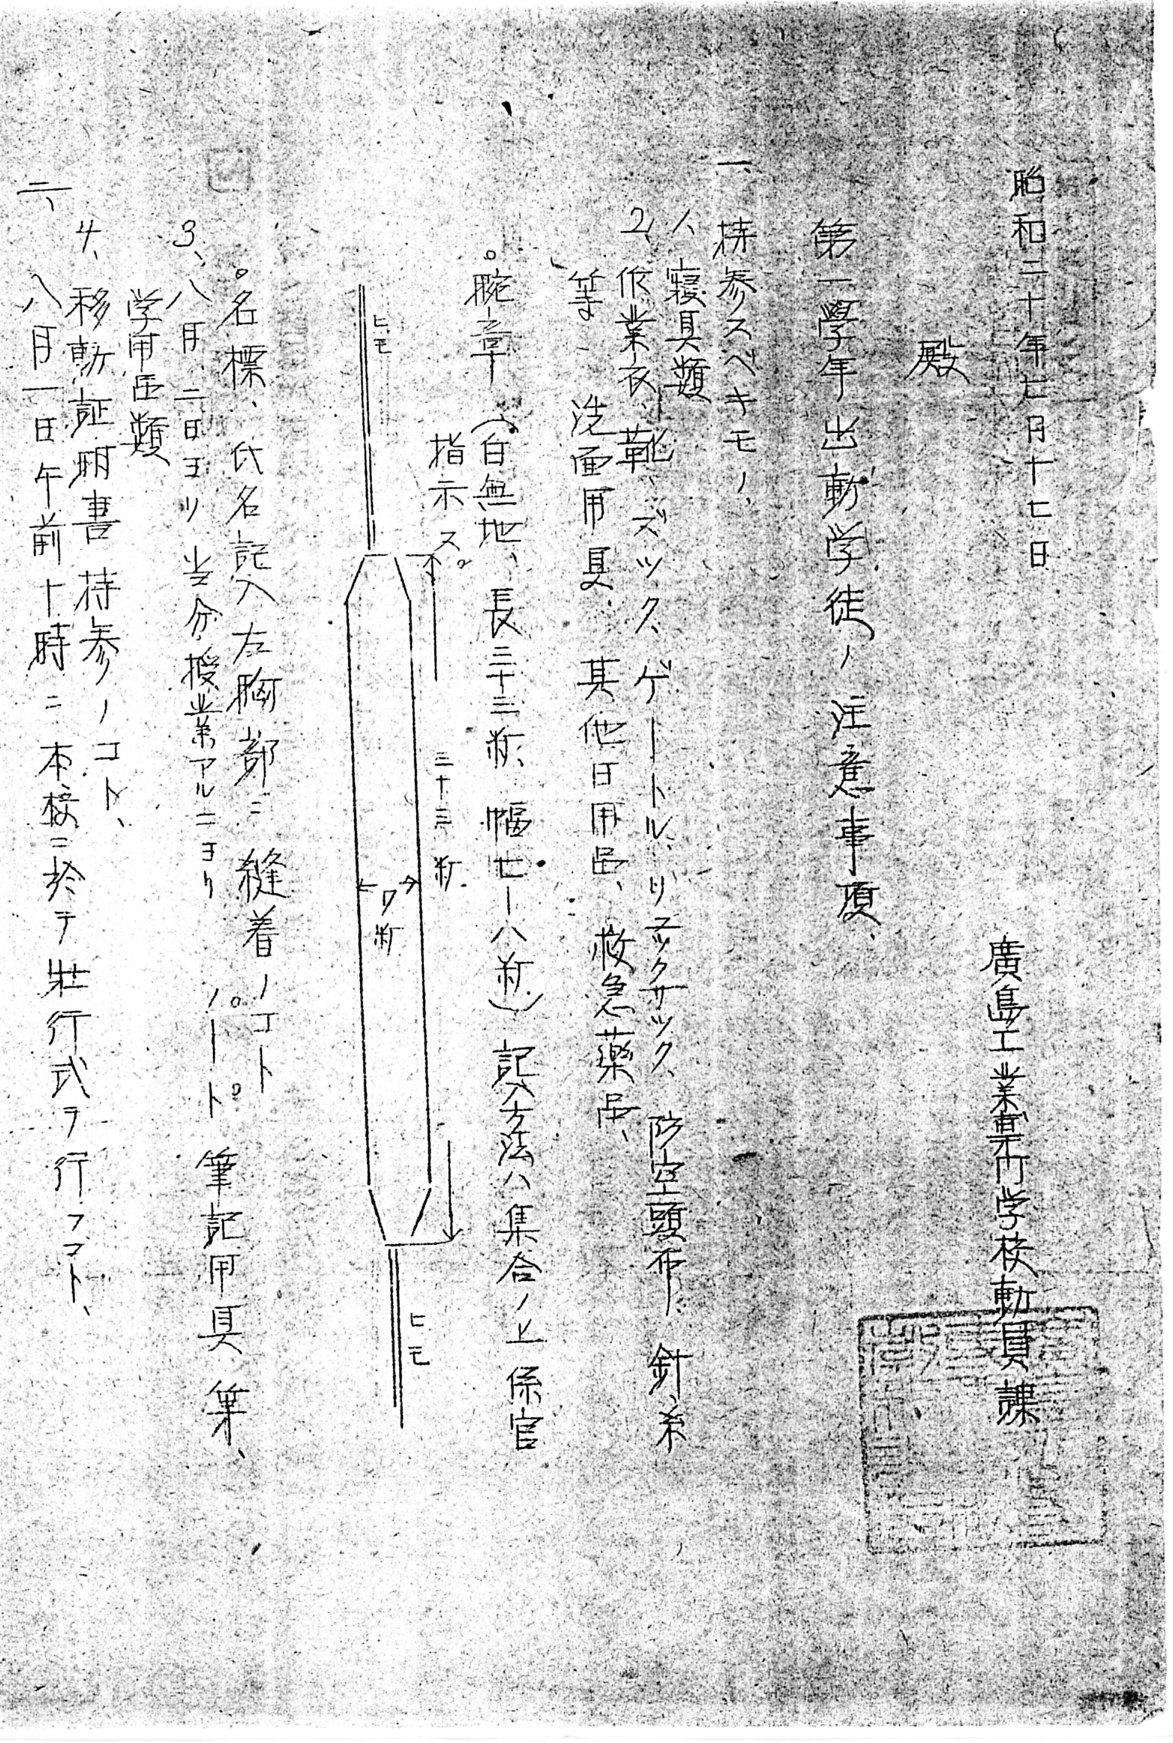 昭和二十年七月十七日
廣島工業専門学校動員課
殿
第一學年出動学徒ノ注意事項、
一、持参スベキモノ、
1、寝具類
2、作業衣、靴、ズック、ゲートル、リュックサック、防空頭布、針、糸
等、洗面用具、其他日用品、救急薬品、
。腕章（白無地、長三十三糎、幅七ー八糎）記入方法ハ集合ノ上係官
指示ス。
ヒモ
三十三糎
7糎
ヒモ
。名標、氏名記入左胸部ニ縫着ノコト
3、八月二日ヨリ当分授業アルニヨリ ノート 筆記用具 筆、
学用品類
4、移動証明書持参ノコト、
二、八月一日午前十時ニ本校ニ於テ壮行式ヲ行フコト、